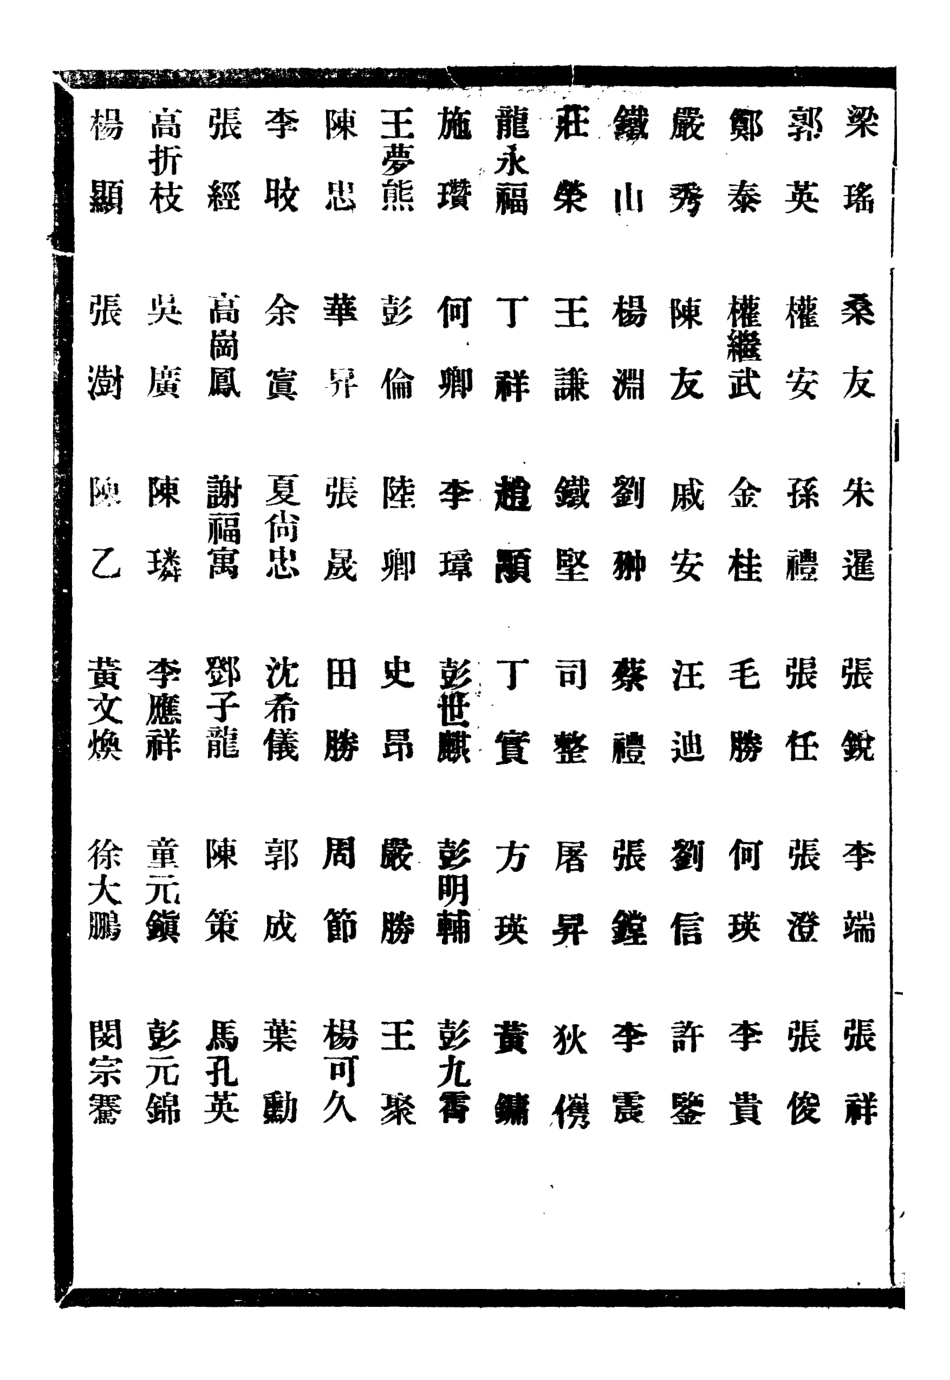 梁瑤 桑友 朱暹 張銳 李端 張祥
郭英 權安 孫禮 張任 張澄 張俊
鄭泰 權繼武 金桂 毛勝 何瑛 李貴
嚴秀 陳友 戚安 汪迪 劉信 許鑒
鐵山 楊淵 劉翀 蔡禮 張鏜 李震
莊榮 王謙 鐵堅 司整 屠昇 狄儁
龍永福 丁祥 趙顒 丁實 方瑛 黃鏞
施瓚 何卿 李璋 彭世麒 彭明輔 彭九霄
王夢熊 彭倫 陸卿 史昂 嚴勝 王聚
陳忠 華昇 張晟 田勝 周節 楊可久
李敃 余寘 夏尙忠 沈希儀 郭成 葉勳
張經 高崗鳳 謝福寓 鄧子龍 陳策 馬孔英
高折枝 吳廣 陳璘 李應祥 童元鎭 彭元錦
楊顯 張澍 陳乙 黃文煥 徐大鵬 閔宗騫